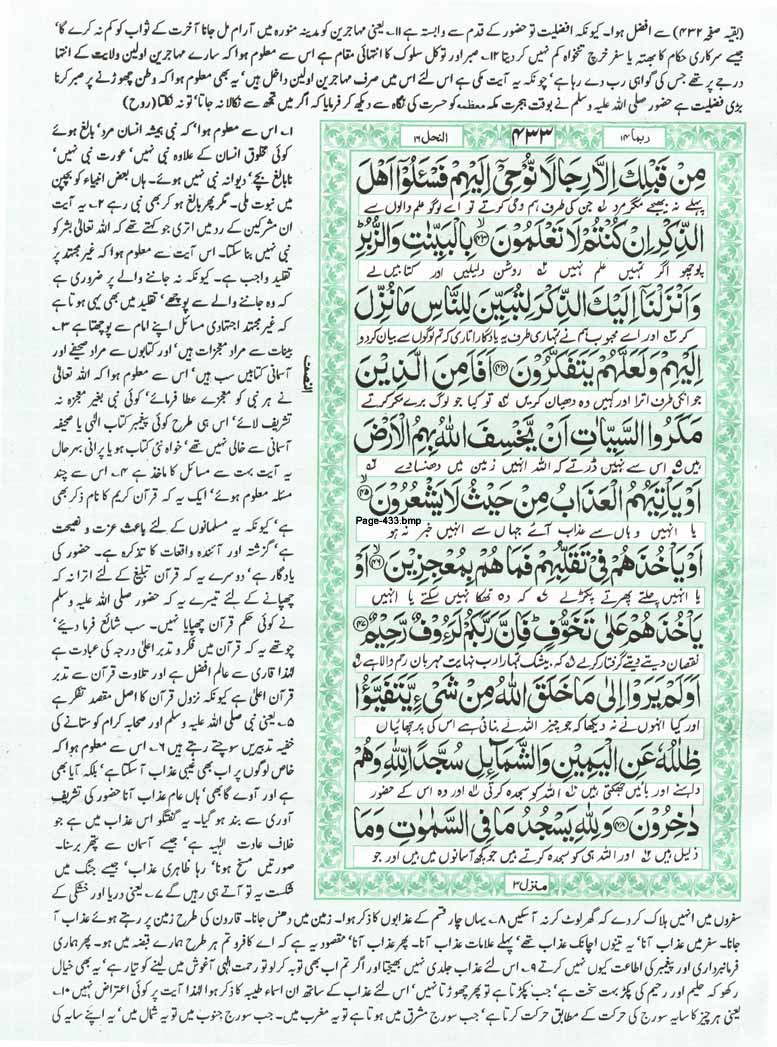 (بقیہ صفحہ ۴۳۲) سے افضل ہوا۔ کیونکہ افضلیت تو حضور کے قدم سے وابستہ ہے ۱۱۔ یعنی مہاجرین کو مدینہ منورہ میں آرام مل جانا آخرت کے ثواب کو کم نہ کرے گا'
جیسے سرکاری حکام کا بھتہ یا سفر خرچ تنخواہ کم نہیں کر دیتا ۱۲۔ صبر اور توکل سلوک کا انتہائی مقام ہے اس سے معلوم ہوا کہ سارے مہاجرین اولین ولایت کے انتہا
درجے پر تھے جس کی گواہی رب دے رہا ہے' چونکہ یہ آیت مکی ہے اس لئے اس میں صرف مہاجرین اولین داخل ہیں' یہ بھی معلوم ہوا کہ وطن چھوڑنے پر صبر کرنا
بڑی فضیلت ہے حضور صلی اللہ علیہ وسلم نے بوقت ہجرت مکہ معظمہ کو حسرت کی نگاہ سے دیکھ کر فرمایا کہ اگر میں تجھ سے نکالا نہ جاتا' تو نہ نکلتا (روح)
ربما ۱۴
۴۳۳
النحل ۱۶
مِنْ قَبْلِكَ اِلَّا رِجَالًا نُّوْحِىْٓ اِلَيْهِمْ فَسْـَٔلُوْٓا اَهْلَ
پہلے نہ بھیجے مگر مرد ۱؎ جن کی طرف ہم وحی کرتے تو اے لوگو علم والوں سے
الذِّكْرِ اِنْ كُنْتُمْ لَا تَعْلَمُوْنَ ﴿۴۳﴾ بِالْبَيِّنٰتِ وَالزُّبُرِ
پوچھو اگر تمہیں علم نہیں ۲؎ روشن دلیلیں اور کتابیں لے
وَاَنْزَلْنَآ اِلَيْكَ الذِّكْرَ لِتُبَيِّنَ لِلنَّاسِ مَا نُزِّلَ
کر ۳؎ اور اے محبوب ہم نے تمہاری طرف یہ یادگار اتاری کہ تم لوگوں سے بیان کر دو
اِلَيْهِمْ وَلَعَلَّهُمْ يَتَفَكَّرُوْنَ ﴿۴۴﴾ اَفَاَمِنَ الَّذِيْنَ
جو انکی طرف اترا اور کہیں وہ دھیان کریں ۴؎ تو کیا جو لوگ برے مکر کرتے
مَكَرُوا السَّيِّاٰتِ اَنْ يَّخْسِفَ اللّٰهُ بِهِمُ الْاَرْضَ
ہیں ۵؎ اس سے نہیں ڈرتے کہ اللہ انہیں زمین میں دھنسا دے ۶؎
اَوْ يَاْتِيَهُمُ الْعَذَابُ مِنْ حَيْثُ لَا يَشْعُرُوْنَ ﴿۴۵﴾
Page-433.bmp
یا انہیں وہاں سے عذاب آئے جہاں سے انہیں خبر نہ ہو
اَوْ يَاْخُذَهُمْ فِىْ تَقَلُّبِهِمْ فَمَا هُمْ بِمُعْجِزِيْنَ ﴿۴۶﴾ اَوْ
یا انہیں چلتے پھرتے پکڑ لے ۷؎ کہ وہ تھکا نہیں سکتے یا انہیں
يَاْخُذَهُمْ عَلٰى تَخَوُّفٍ ؕ فَاِنَّ رَبَّكُمْ لَرَءُوْفٌ رَّحِيْمٌ ﴿۴۷﴾
نقصان دیتے دیتے گرفتار کر لے ۸؎ کہ بیشک تمہارا رب نہایت مہربان رحم والا ہے ۹؎
اَوَلَمْ يَرَوْا اِلٰى مَا خَلَقَ اللّٰهُ مِنْ شَىْءٍ يَّتَفَيَّؤُا
اور کیا انہوں نے نہ دیکھا کہ جو چیز اللہ نے بنائی ہے اس کی پرچھائیاں
ظِلٰلُهٗ عَنِ الْيَمِيْنِ وَالشَّمَآئِلِ سُجَّدًا لِّلّٰهِ وَهُمْ
داہنے اور بائیں جھکتی ہیں ۱۰؎ اللہ کو سجدہ کرتی ۱۱؎ اور وہ اس کے حضور
دٰخِرُوْنَ ﴿۴۸﴾ وَلِلّٰهِ يَسْجُدُ مَا فِى السَّمٰوٰتِ وَمَا
ذلیل ہیں ۱۲؎ اور اللہ ہی کو سجدہ کرتے ہیں جو کچھ آسمانوں میں ہیں اور جو
منزل ۳
النصف
۱۔ اس سے معلوم ہوا' کہ نبی ہمیشہ انسان مرد' بالغ ہوئے
کوئی مخلوق انسان کے علاوہ نبی نہیں' عورت نبی نہیں'
نابالغ بچے' دیوانہ نبی نہیں ہوئے۔ ہاں بعض انبیاء کو بچپن
میں نبوت ملی۔ مگر پھر بالغ ہو کر بھی نبی رہے ۲۔ یہ آیت
ان مشرکین کے رد میں اتری جو کہتے تھے کہ اللہ تعالٰی بشر کو
نبی نہیں بنا سکتا۔ اس آیت سے معلوم ہوا کہ غیر مجتہد پر
تقلید واجب ہے۔ کیونکہ نہ جاننے والے پر ضروری ہے
کہ وہ جاننے والے سے پوچھے' تقلید میں بھی یہی ہوتا ہے
کہ غیر مجتہد اجتہادی مسائل اپنے امام سے پوچھتا ہے ۳۔
بینات سے مراد معجزات ہیں' اور کتابوں سے مراد صحیفے اور
آسمانی کتابیں سب ہیں' اس سے معلوم ہوا کہ اللہ تعالٰی
نے ہر نبی کو معجزے عطا فرمائے' کوئی نبی بغیر معجزہ نہ
تشریف لائے' اس ہی طرح کوئی پیغمبر کتاب الٰہی یا صحیفہ
آسمانی سے خالی نہیں تھے' خواہ نئی کتاب ہو یا پرانی بہرحال
یہ آیت بہت سے مسائل کا ماخذ ہے ۴۔ اس سے چند
مسئلہ معلوم ہوئے' ایک یہ کہ قرآن کریم کا نام ذکر بھی
ہے' کیونکہ یہ مسلمانوں کے لئے باعث عزت و نصیحت
ہے' گزشتہ اور آئندہ واقعات کا تذکرہ ہے۔ حضور کی
یادگار ہے' دوسرے یہ کہ قرآن تبلیغ کے لئے اترا نہ کہ
چھپانے کے لئے تیسرے یہ کہ حضور صلی اللہ علیہ وسلم
نے کوئی حکم قرآن چھپایا نہیں۔ سب شائع فرما دیئے'
چوتھے یہ کہ قرآن میں فکر و تدبر اعلٰی درجہ کی عبادت ہے
لہٰذا قاری سے عالم افضل ہے اور تلاوت قرآن سے تدبر
قرآن اعلٰی ہے کیونکہ نزول قرآن کا اصل مقصد تفکر ہے
۵۔ یعنی نبی صلی اللہ علیہ وسلم اور صحابہ کرام کو ستانے کی
خفیہ تدبیریں سوچتے رہتے ہیں ۶۔ اس سے معلوم ہوا کہ
خاص لوگوں پر اب بھی غیبی عذاب آ سکتا ہے' بلکہ آیا بھی
ہے اور آوے گا بھی' ہاں عام عذاب آنا حضور کی تشریف
آوری سے بند ہو گیا۔ یہ گفتگو اس عذاب میں ہے جو
خلاف عادت الٰہیہ ہے' جیسے آسمان سے پتھر برسنا۔
صورتیں مسخ ہونا' رہا ظاہری عذاب' جیسے جنگ میں
شکست یہ تو آتے ہی رہیں گے ۷۔ یعنی دریا اور خشکی کے
سفروں میں انہیں ہلاک کر دے کہ گھر لوٹ کر نہ آ سکیں ۸۔ یہاں چار قسم کے عذابوں کا ذکر ہوا۔ زمین میں دھنس جانا۔ قارون کی طرح زمین پر رہتے ہوئے عذاب آ
جانا۔ سفر میں عذاب آنا' یہ تینوں اچانک عذاب تھے' پہلے علامات عذاب آنا۔ پھر عذاب آنا' مقصود یہ ہے کہ اے کافرو تم ہر طرح ہمارے قبضہ میں ہو۔ پھر ہماری
فرمانبرداری اور پیغمبر کی اطاعت کیوں نہیں کرتے ۹۔ اس لئے عذاب جلدی نہیں بھیجتا اور اگر تم اب بھی توبہ کر لو تو رحمت الٰہی آغوش میں لینے کو تیار ہے' یہ بھی خیال
رکھو کہ حلیم اور رحیم کی پکڑ بہت سخت ہے' جب پکڑتا ہے تو پھر چھوڑتا نہیں' اس لئے عذاب کے ساتھ ان اسماء طیبہ کا ذکر ہوا لہٰذا آیت پر کوئی اعتراض نہیں ۱۰۔
یعنی ہر چیز کا سایہ سورج کی حرکت کے مطابق حرکت کرتا ہے' جب سورج مشرق میں ہوتا ہے تو یہ مغرب میں۔ جب سورج جنوب میں تو یہ شمال میں' یہ اپنے سایہ کی